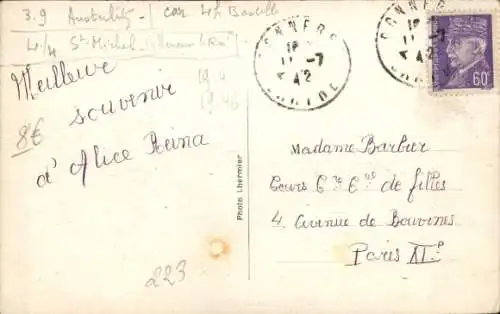 3.9 Austerlitz - / car 4/h Bastille
4/4 St Michel
Meilleur
souvenir
d'Alice Reina
8€
19.4
19.46
223
Photo Lhermier
CONNERRÉ
11-7
42
SARTHE
60c
Madame Barbier
Cours Cre Cal de filles
4, Avenue de Bouvines
Paris XIe